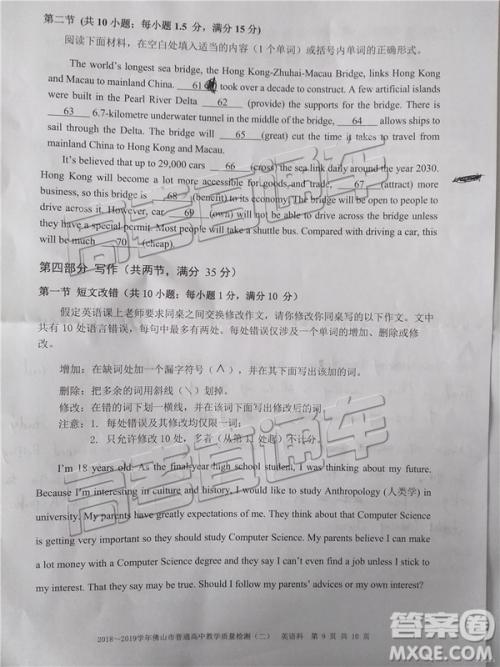 第二节 (共 10 小题；每小题 1.5 分，满分 15 分)
阅读下面材料，在空白处填入适当的内容（1 个单词）或括号内单词的正确形式。
The world's longest sea bridge, the Hong Kong-Zhuhai-Macau Bridge, links Hong Kong
and Macau to mainland China. 61 took over a decade to construct. A few artificial islands
were built in the Pearl River Delta 62 (provide) the supports for the bridge. There is
63 6.7-kilometre underwater tunnel in the middle of the bridge, 64 allows ships to
sail through the Delta. The bridge will 65 (great) cut the time it takes to travel from
mainland China to Hong Kong and Macau.
It's believed that up to 29,000 cars 66 (cross) the sea link daily around the year 2030.
Hong Kong will become a lot more accessible for goods and trade, 67 (attract) more
business, so this bridge is 68 (benefit) to its economy. The bridge will be open to people to
drive across it. However, car 69 (own) will not be able to drive across the bridge unless
they have a special permit. Most people will take a shuttle bus. Compared with driving a car, this
will be much 70 (cheap).
第四部分 写作（共两节，满分 35 分）
第一节 短文改错（共 10 小题；每小题 1 分，满分 10 分）
假定英语课上老师要求同桌之间交换修改作文，请你修改你同桌写的以下作文。文中
共有 10 处语言错误，每句中最多有两处。每处错误仅涉及一个单词的增加、删除或修
改。
增加：在缺词处加一个漏字符号（∧），并在其下面写出该加的词。
删除：把多余的词用斜线（\）划掉。
修改：在错的词下划一横线，并在该词下面写出修改后的词。
注意：1. 每处错误及其修改均仅限一词；
2. 只允许修改 10 处，多者（从第 11 处起）不计分。
I'm 18 years old. As the final-year high school student, I was thinking about my future.
Because I'm interesting in culture and history, I would like to study Anthropology (人类学) in
university. My parents have greatly expectations of me. They think that Computer Science
is getting very important so they should study Computer Science. My parents believe I can make
a lot money with a Computer Science degree and they say I can't even find a job unless I stick to
my interest. That they say may be true. Should I follow my parents' advices or my own interest?
2018～2019学年佛山市普通高中教学质量检测（二） 英语科 第 9 页 共 10 页
高考直通车
高考直通车
答案圈